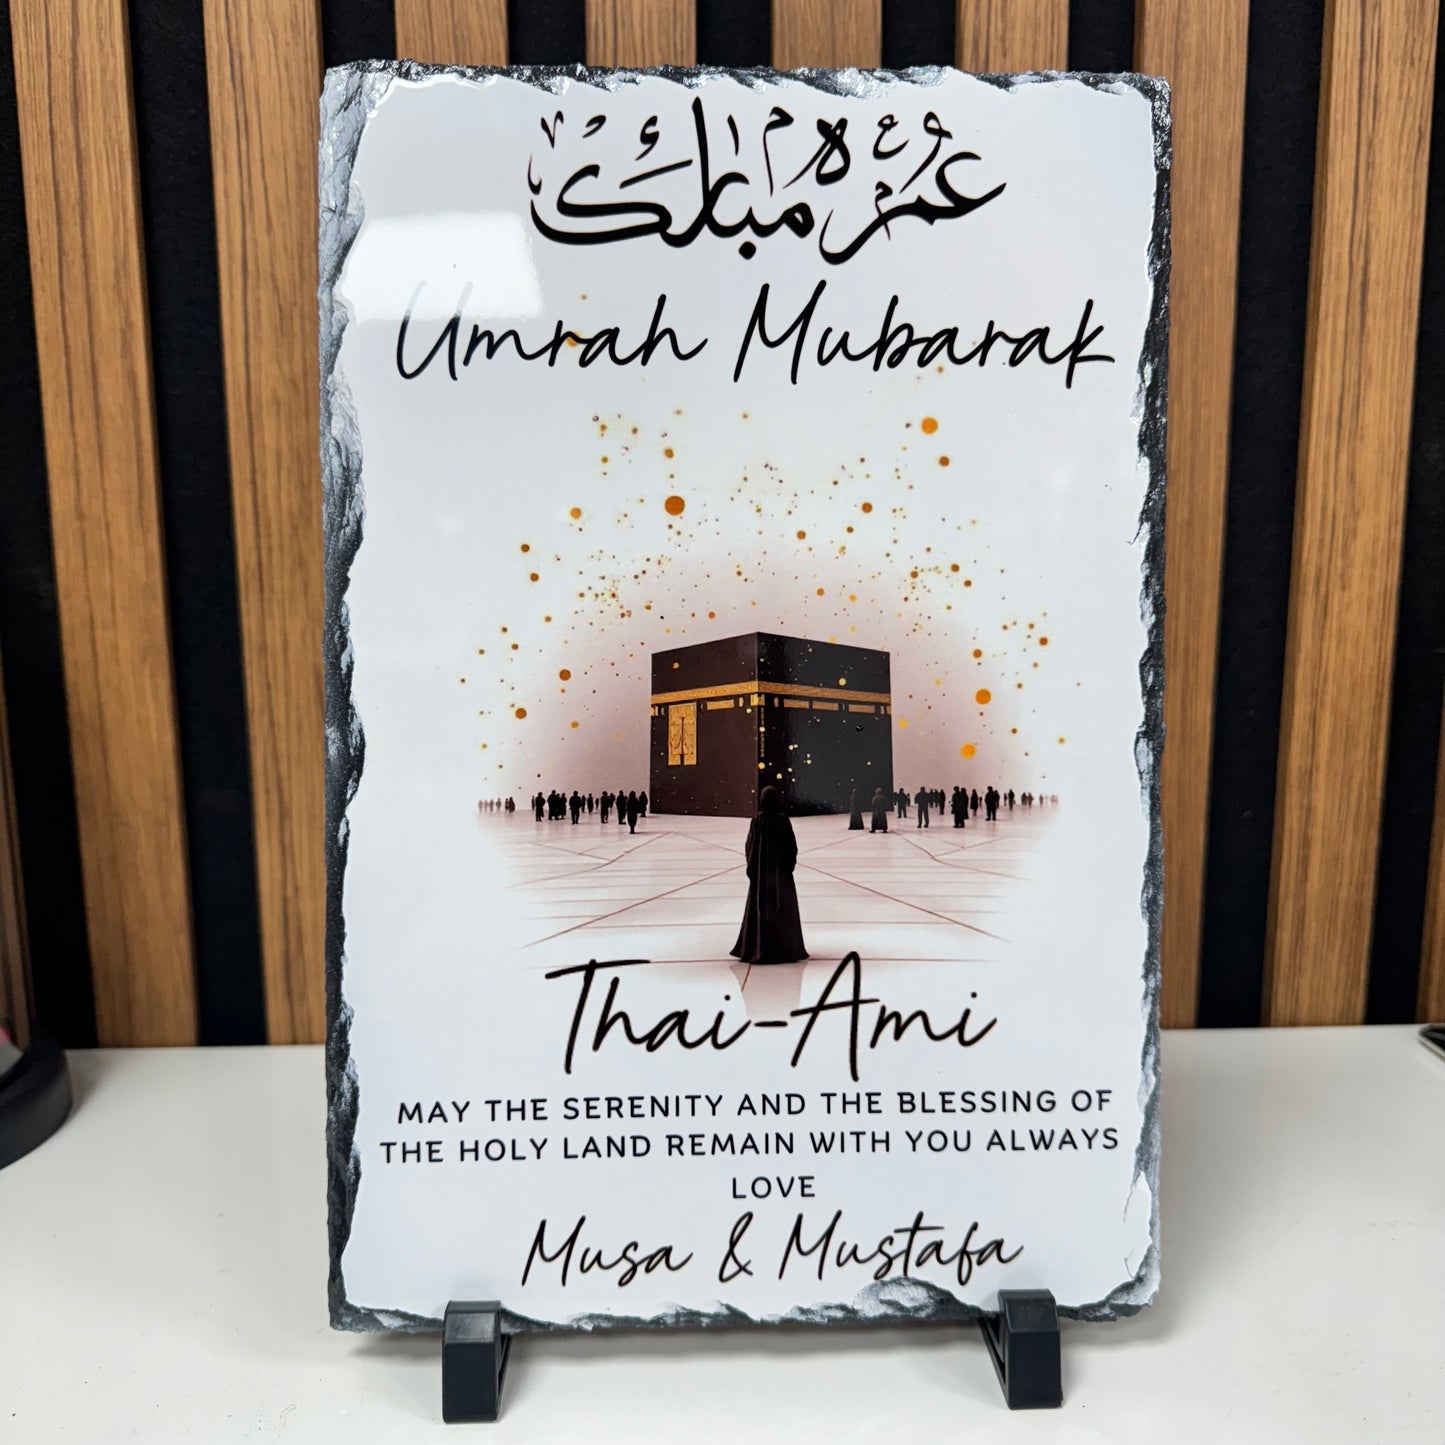 عمرة مبارك
Umrah Mubarak
Thai-Ami
MAY THE SERENITY AND THE BLESSING OF
THE HOLY LAND REMAIN WITH YOU ALWAYS
LOVE
Musa & Mustafa